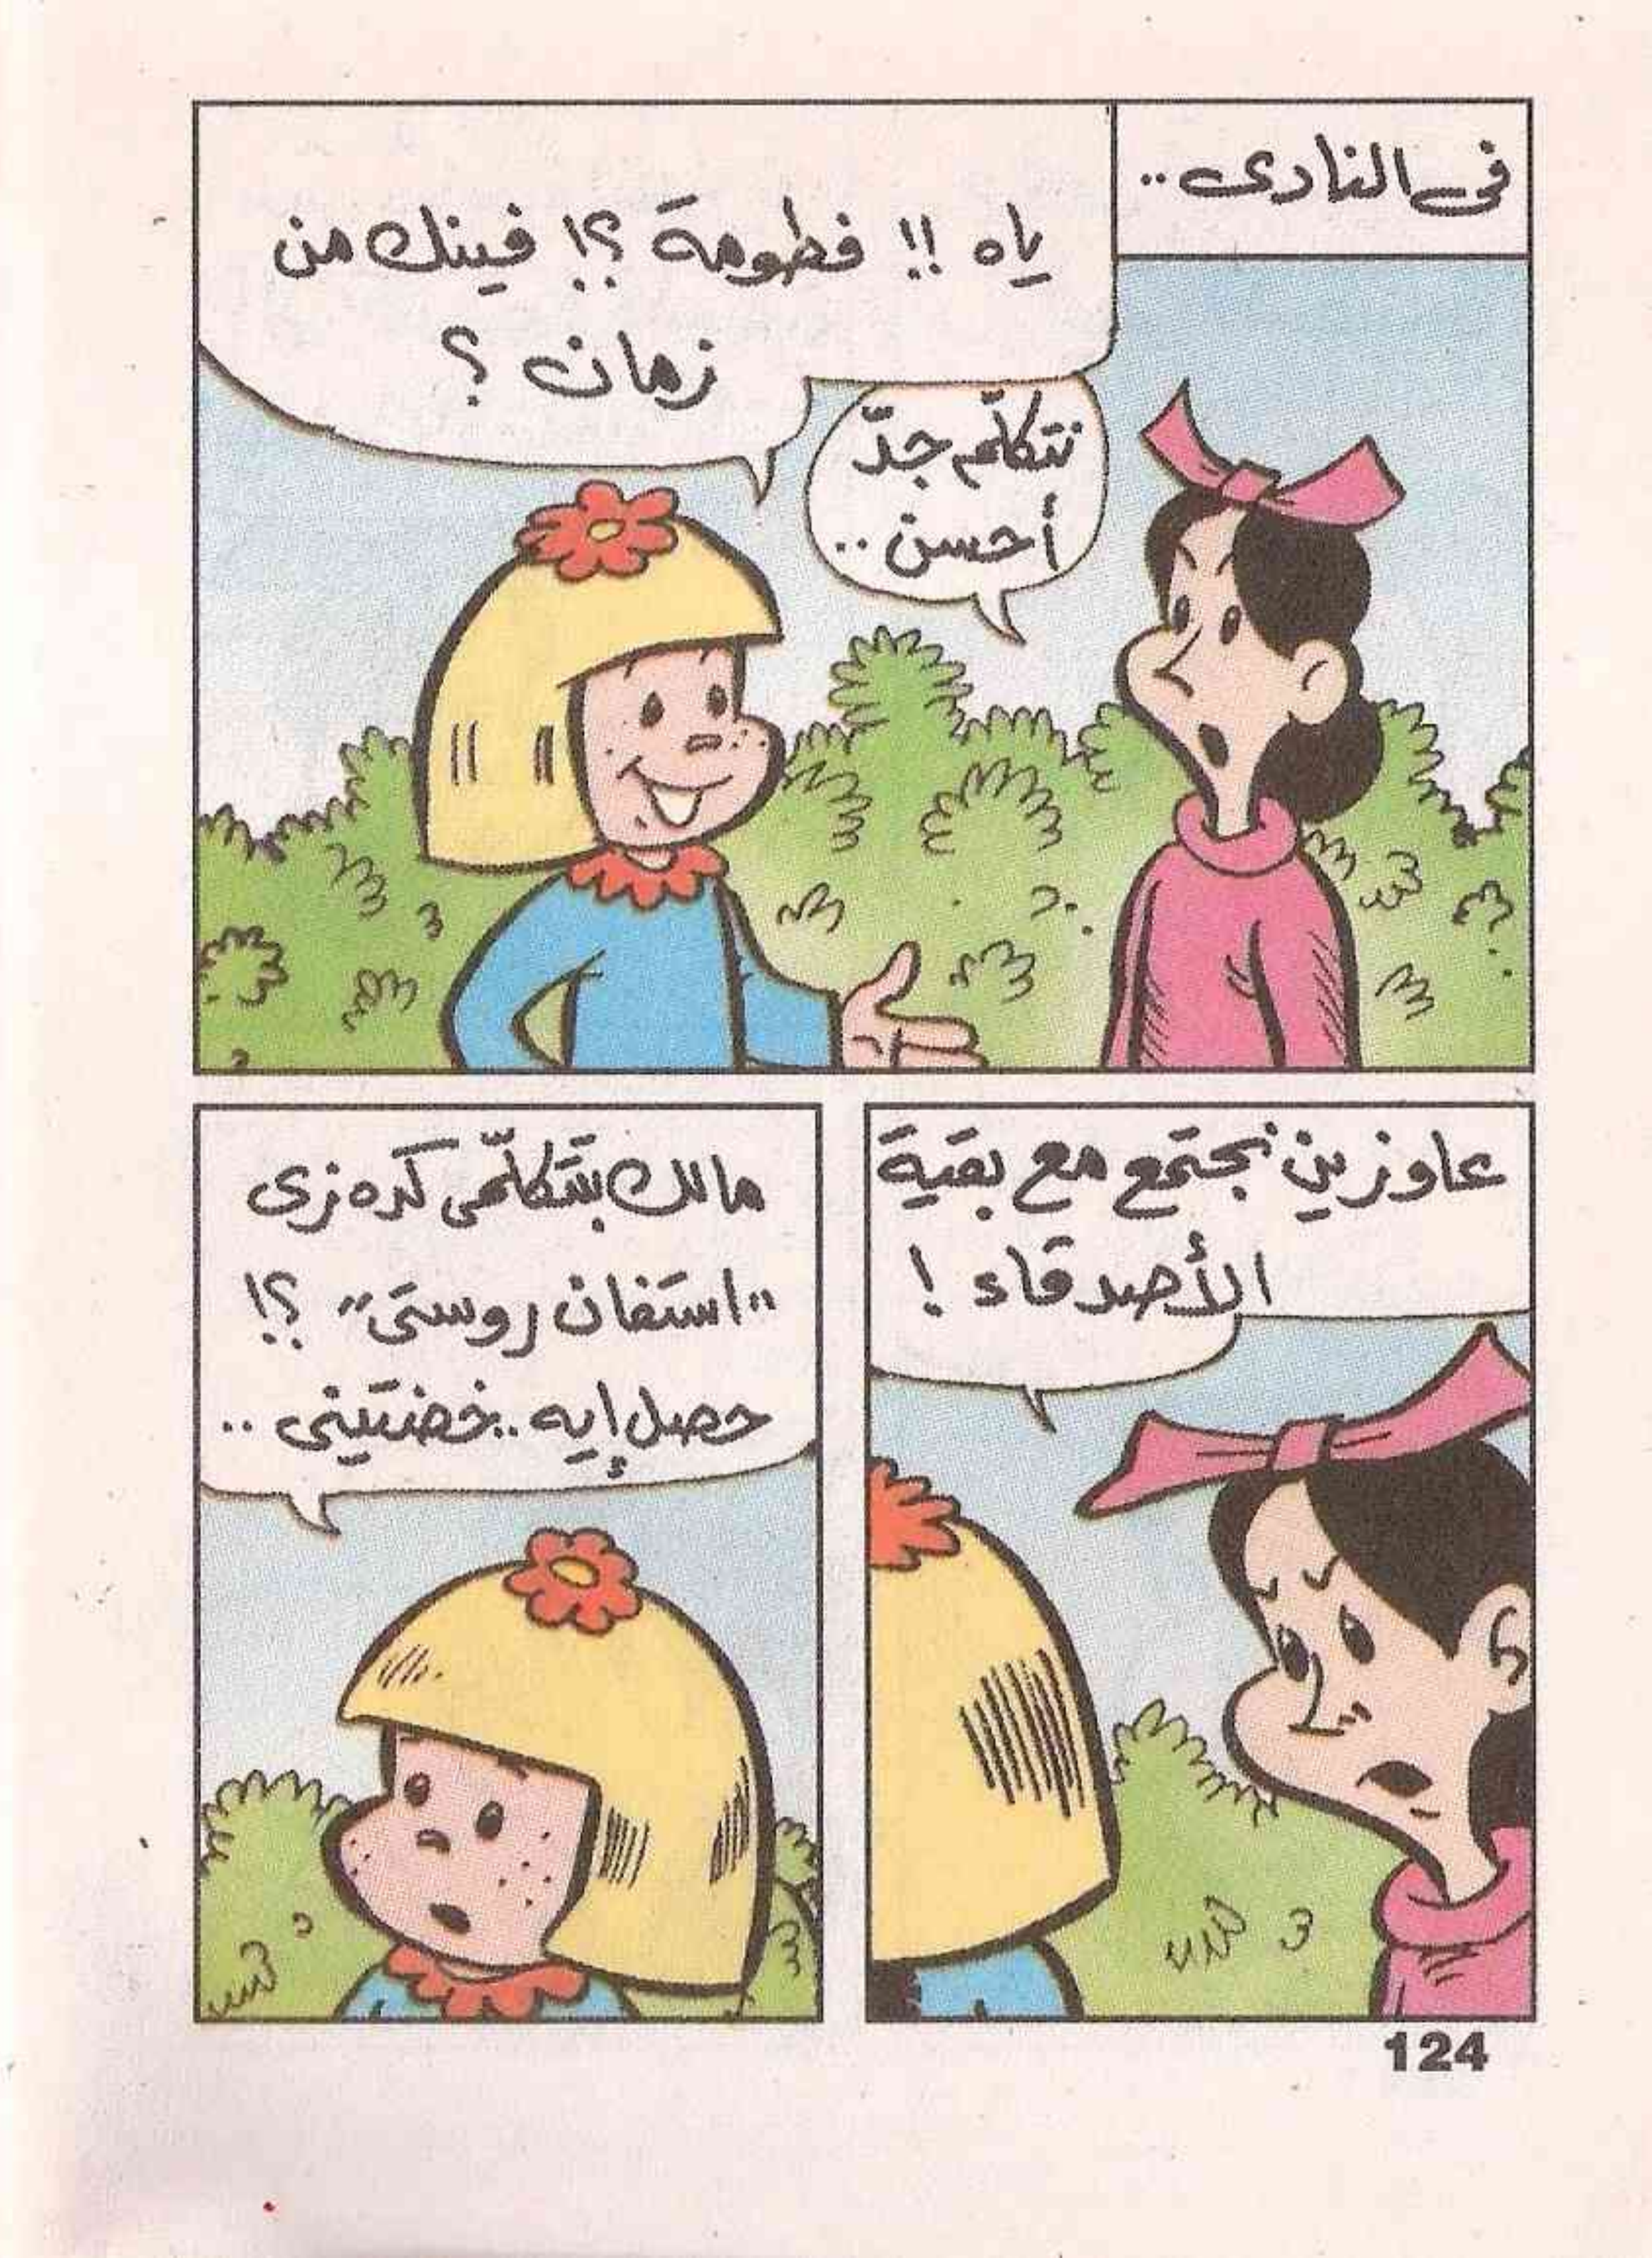 فى النادى..
ياه !! فطومة ؟! فينك من
زمان ؟
نتكلّم جدّ
أحسن ..
عاوزين نجتمع مع بقية
الأصدقاء !
مالك بتتكلّمى كده زى
"استفان روستى" ؟!
حصل إيه.. خضتينى ..
124